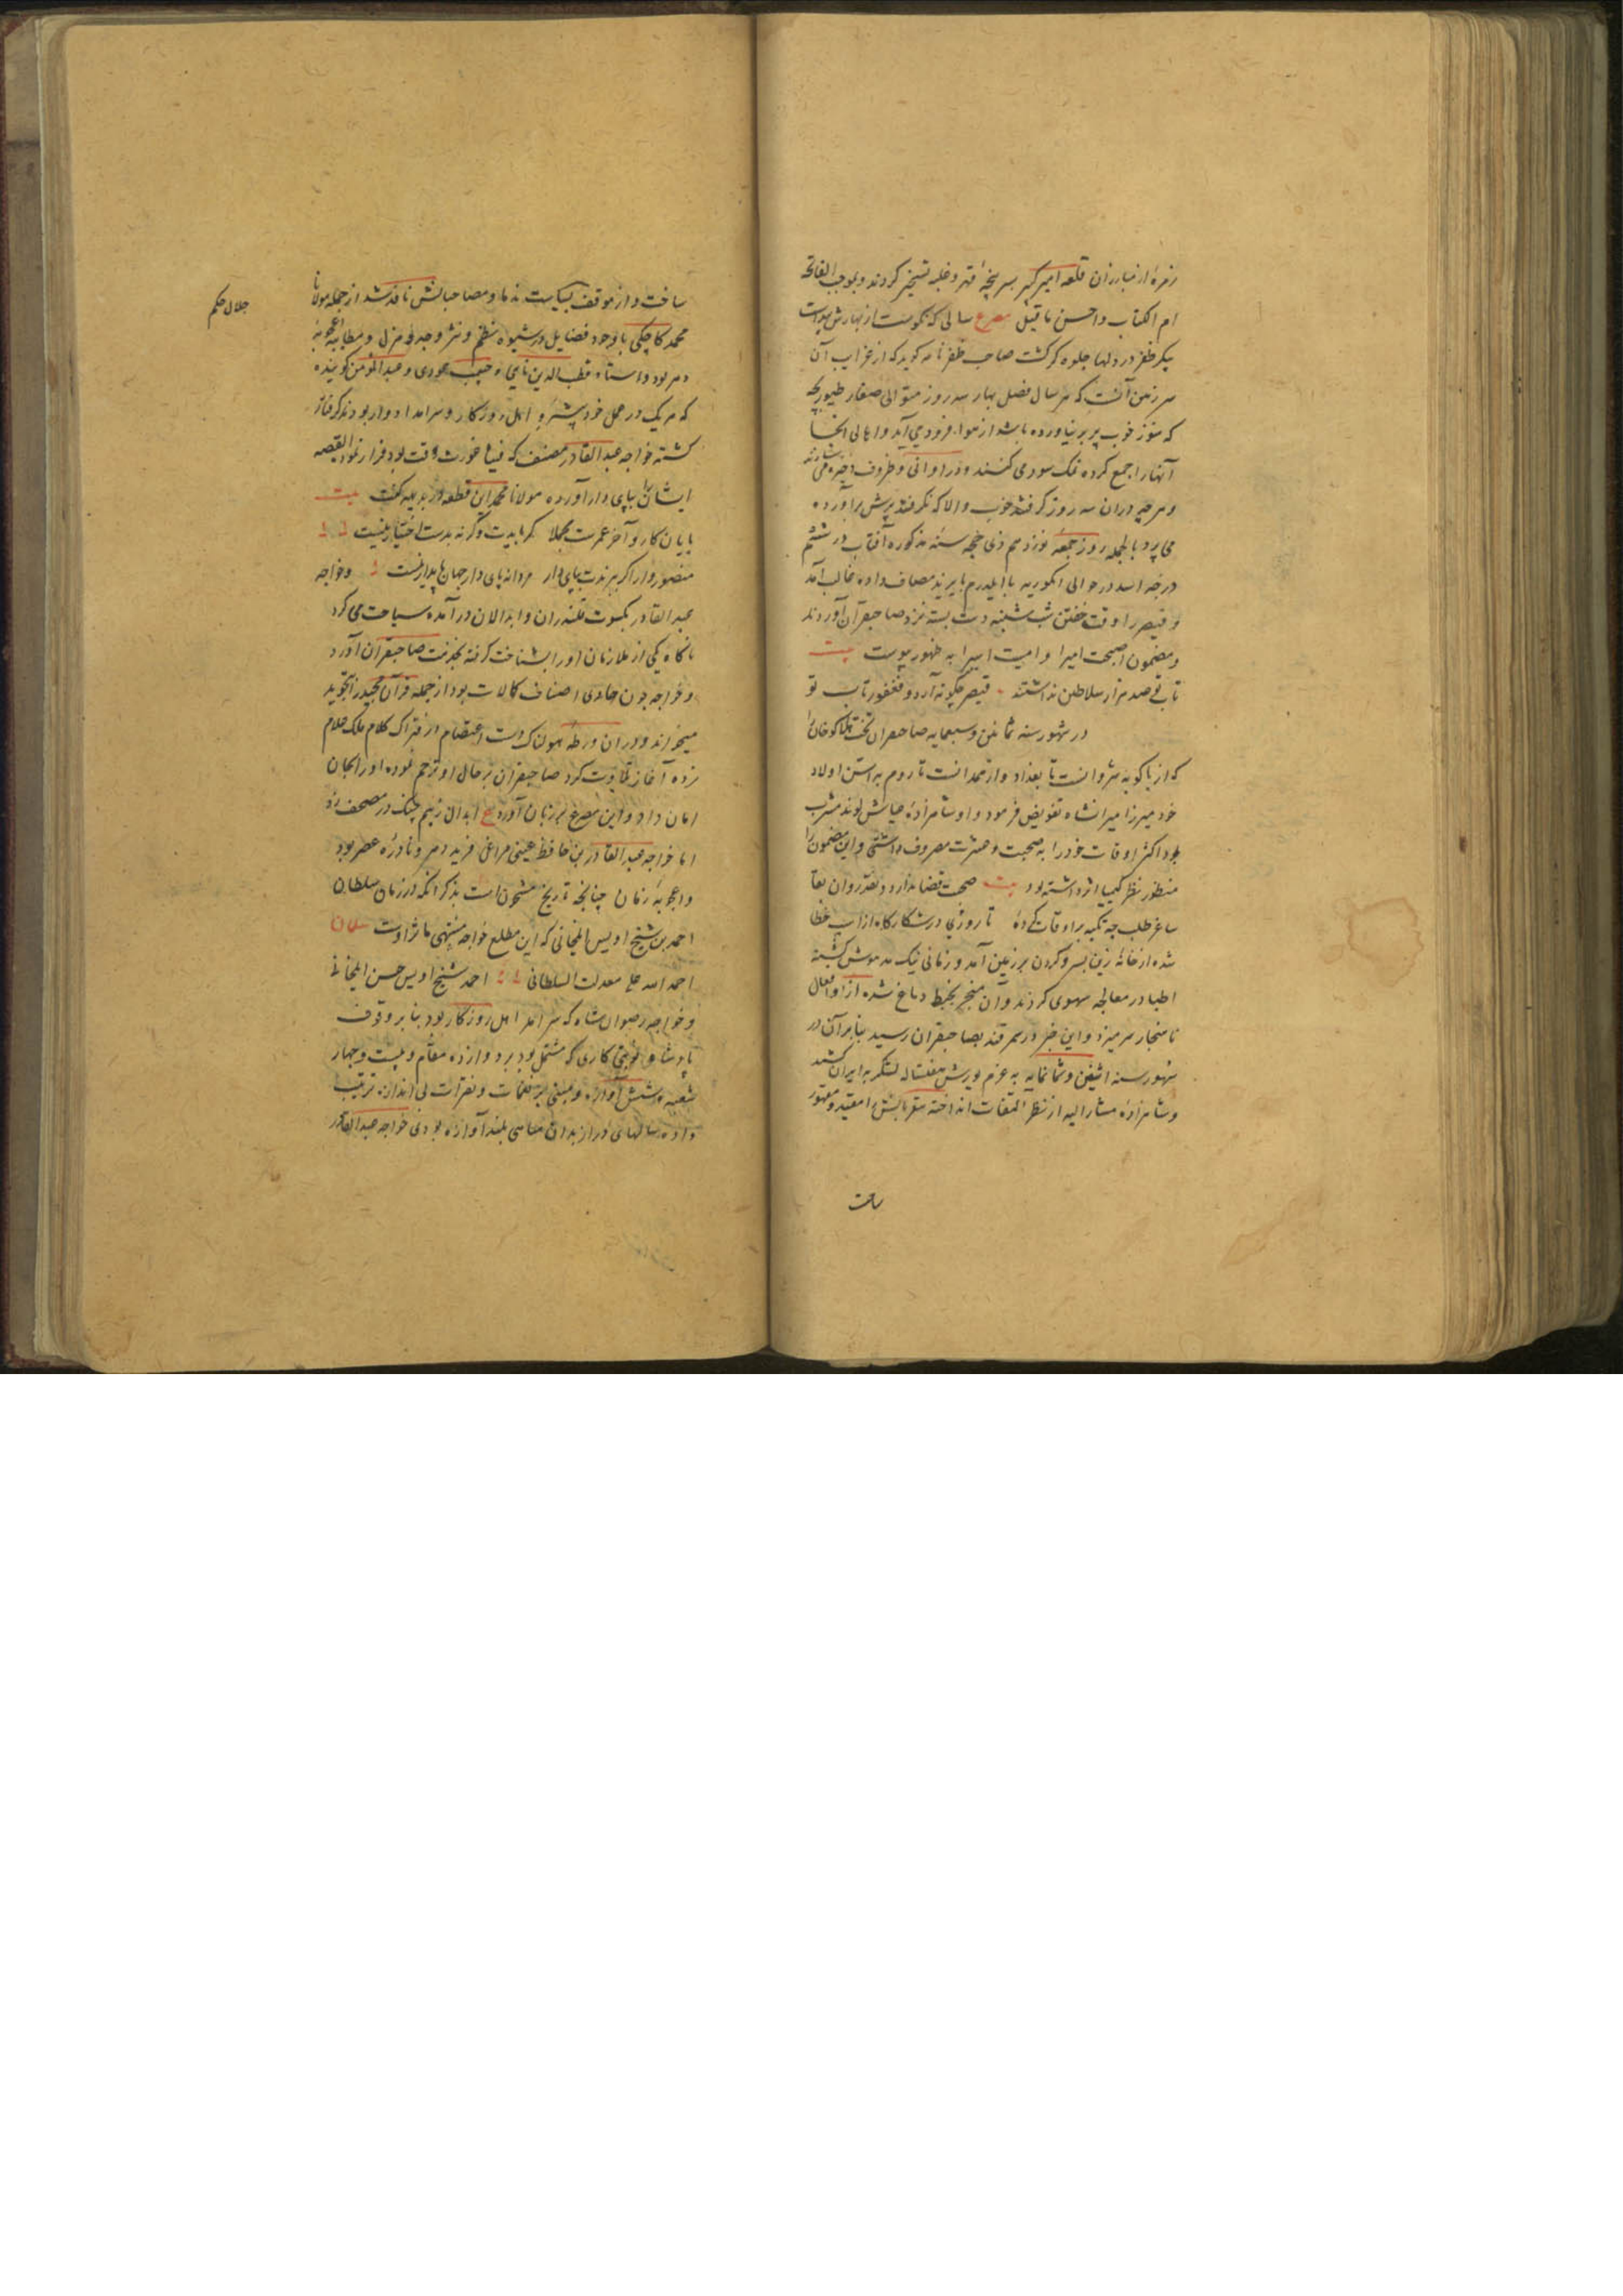 زمرهٔ از مبارزان قلعه امیر کبیر بسر پنجهٔ قهر و غلبه تسخیر کردند و بموجب الفاتحه
ام الکتاب و احسن ما قیل مصرع سالی که نکوست از بهارش پیداست
پیکر ظفر در دلها جلوه گر گشت صاحب ظفرنامه گوید که از غرایب آن
سرزمین آنست که هر سال فصل بهار سه روز متوالی صغار طیور بچه
که هنوز خوب پر بر نیاورده باشد از هوا فرود می آید و اهالی آنجا
آنها را جمع کرده نمک سود می کنند و در اوانی و ظروف ذخیره می سازند
و هر چه در آن سه روز گرفتند خوب و الا که نگرفتند پرش برآورده
می پرد بالجمله روز جمعه نوزدهم ذی حجه سنه مذکوره آفتاب در ششم
درجه اسد در حوالی انکوریه با ایلدرم بایزید مصاف داده غالب آمد
و قیصر را وقت خفتن شب شنبه دست بسته نزد صاحبقران آوردند
و مضمون اصبحت امیرا و امسیت اسیرا به ظهور پیوست بیت
تاب تو صد هزار سلاطین نداشتند قیصر چگونه آرد و فغفور تاب تو
در شهور سنه ثمانین و سبعمایه صاحبقران تخت هلاکو خان را
که از باکویه شروانست تا بغداد و از همدانست تا روم به استن اولاد
خود میرزا میرانشاه تفویض فرمود و او شاهزادهٔ عیاش لوند مشرب
بود اکثر اوقات خود را به صحبت و عشرت مصروف داشتی و این مضمون را
منظور نظر کیمیا اثر داشته بود بیت صحبت قضا ندارد و نقد روان بقا
ساغر طلب چه تکیه بر اوقات کرده تا روزی در شکارگاه از اسپ خطا
شده از خانهٔ زین بسر و گردن بر زمین آمد و زمانی نیک مدهوش گشته
اطبا در معالجه سهوی کردند و آن منجر بخبط دماغ شده از او افعال
ناهنجار سر میزد و این خبر در سمرقند بصاحبقران رسید بنابر آن در
شهور سنه اثنین و ثمانمایه به عزم یورش هفتساله لشکر به ایران کشید
و شاهزادهٔ مشار الیه از نظر التفات انداخته مقربانش را مقید و مقهور
ساخت
ساخت و از موقف سیاست ندما و مصاحبانش نافذ شد از جمله مولانا
محمد کاخکی با وجود فضایل در شیوه نظم و نثر و جد و هزل و مطایبه اعجوبهٔ
دهر بود و استاد قطب الدین نایی و حبیب عودی و عبد المومن گوینده
که هر یک در عمل خود پیشرو اهل روزگار و سرآمد ادوار بودند گرفتار
گشته خواجه عبد القادر مصنف که فیثاغورث وقت بود فرار نمود القصه
ایشان را بپای دار آورده مولانا محمد این قطعه در بدیهه گفت بیت
پایان کار و آخر عمرست ملحدا گر بایدت و گرنه بدست اختیار نیست
منصور وار اگر ببرندت بپای دار مردانه پای دار جهان پایدار نیست و خواجه
عبد القادر بکسوت قلندران و ابدالان در آمده سیاحت می کرد
ناگاه یکی از ملازمان او را بشناخت گرفته بخدمت صاحبقران آورد
و خواجه چون حاوی اصناف کمالات بود از جمله قرآن مجید را بتجوید
میخواند و در آن ورطه هولناک دست اعتصام در فتراک کلام ملک علام
زده آغاز تلاوت کرد صاحبقران بر حال او ترحم نموده او را بجان
امان داد و این مصرع بر زبان آورد ع ابدال ز بیم چنگ در مصحف زد
اما خواجه عبد القادر بن حافظ غیبی مراغی فرید دهر و نادرهٔ عصر بود
و اعجوبهٔ زمان چنانچه تاریخ مشحون است بذکر آنکه در زمان سلطان
احمد بن شیخ اویس ایلخانی که این مطلع خواجه منتهی مآثر اوست
احمد الله علی معدلت السلطانی احمد شیخ اویس حسن ایلخانی
و خواجه رضوان شاه که سرآمد اهل روزگار بود بنا بر وقوف
پادشاه نوبتی کاری که مشتمل بود بر دوازده مقام و بیست و چهار
شعبه و شش آوازه و مبنی بر نغمات و نقرات بی اندازه ترتیب
داده سالهای دراز بدان مباهی بلند آوازه بودی خواجه عبد القادر
جلال حکیم